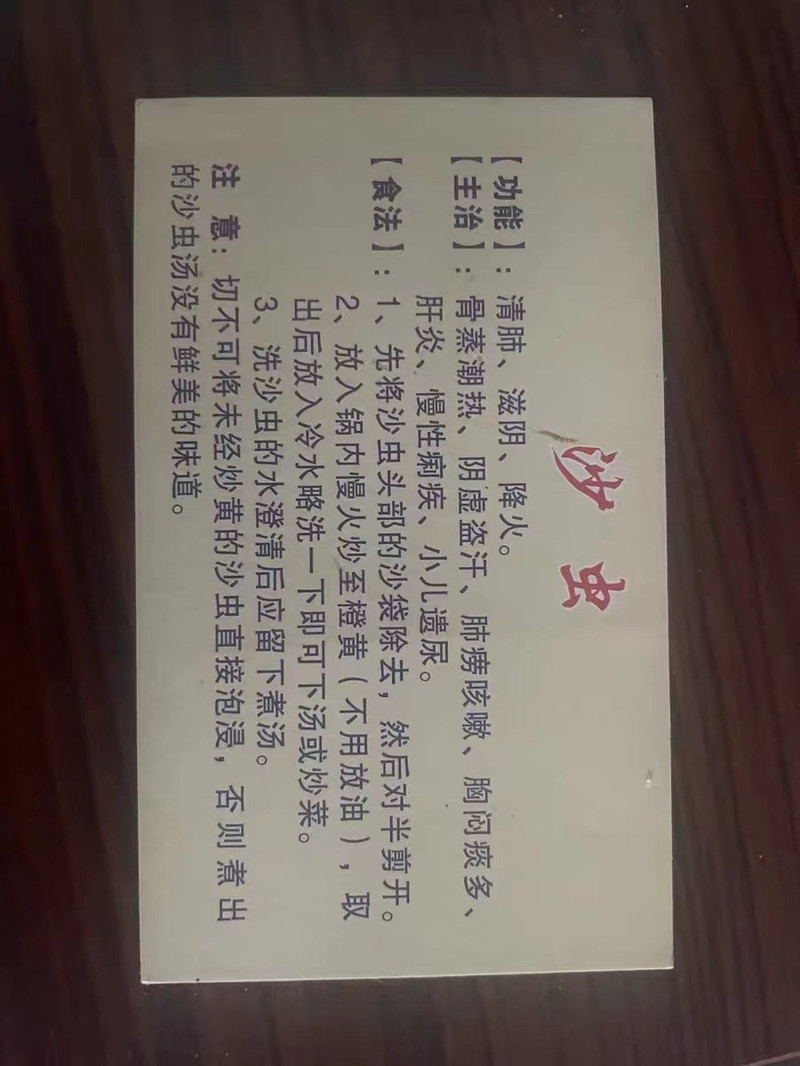 沙虫
【功能】：清肺、滋阴、降火。
【主治】：骨蒸潮热、阴虚盗汗、肺痨咳嗽、胸闷痰多、
肝炎、慢性痢疾、小儿遗尿。
【食法】：1、先将沙虫头部的沙袋除去，然后对半剪开。
2、放入锅内慢火炒至橙黄（不用放油），取
出后放入冷水略洗一下即可下汤或炒菜。
3、洗沙虫的水澄清后应留下煮汤。
注意：切不可将未经炒黄的沙虫直接泡浸，否则煮出
的沙虫汤没有鲜美的味道。